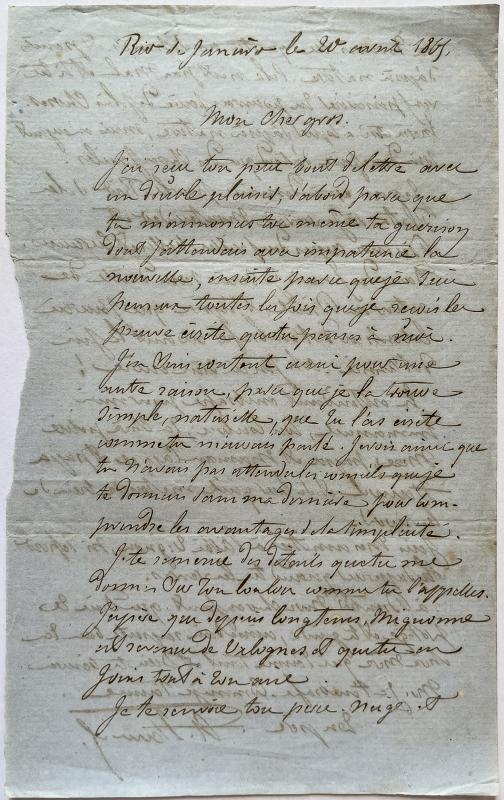 Rio de Janeiro le 20 avril 1865.
Mon cher gros.
J'ai reçu ton petit bout de lettre avec
un double plaisir, d'abord parce que
tu m'annonces toi même ta guérison
dont j'attendais avec impatience la
nouvelle, ensuite parce que je suis
heureux toutes les fois que je reçois la
preuve écrite que tu penses à moi.
J'en suis content aussi pour une
autre raison, parce que je la trouve
simple, naturelle, que tu l'as écrite
comme tu m'aurais parlé. Je vois ainsi que
tu n'avais pas attendu les conseils que je
te donnais dans ma dernière pour com-
prendre les avantages de la simplicité.
Je te remercie des détails que tu me
donnes sur ton loulou comme tu l'appelles.
J'espère que depuis longtemps, Mignonne
est revenue de Valognes et que tu en
jouis tout à ton aise
Je te renvoie ton perce-neige et